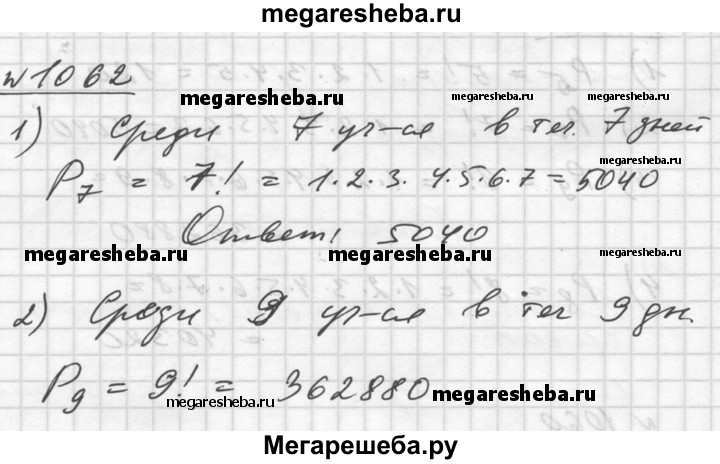 megaresheba.ru
№1062
megaresheba.ru megaresheba.ru megaresheba.ru
1) Среди 7 уч-ся в теч. 7 дней
megaresheba.ru
P7 = 7! = 1·2·3·4·5·6·7 = 5040
Ответ: 5040
megaresheba.ru megaresheba.ru megaresheba.ru
2) Среди 9 уч-ся в теч 9 дн.
P9 = 9! = 362880
megaresheba.ru megaresheba.ru
Мегарешеба.ру